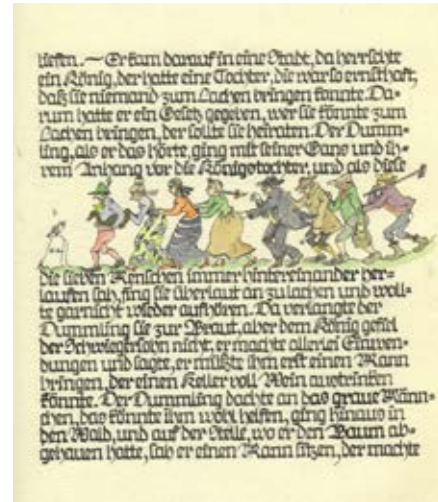 liefen. — Er kam darauf in eine Stadt, da herrschte
ein König, der hatte eine Tochter, die war so ernsthaft,
daß sie niemand zum Lachen bringen konnte. Da-
rum hatte er ein Gesetz gegeben, wer sie könnte zum
Lachen bringen, der sollte sie heiraten. Der Dumm-
ling, als er das hörte, ging mit seiner Gans und ih-
rem Anhang vor die Königstochter, und als diese
die sieben Menschen immer hintereinander her-
laufen sah, fing sie überlaut an zu lachen und woll-
te garnicht wieder aufhören. Da verlangte der
Dummling sie zur Braut, aber dem König gefiel
der Schwiegersohn nicht, er machte allerlei Einwen-
dungen und sagte, er müßte ihm erst einen Mann
bringen, der einen Keller voll Wein austrinken
könnte. Der Dummling dachte an das graue Männ-
chen, das könnte ihm wohl helfen, ging hinaus in
den Wald, und auf der Stelle, wo er den Baum ab-
gehauen hatte, sah er einen Mann sitzen, der machte